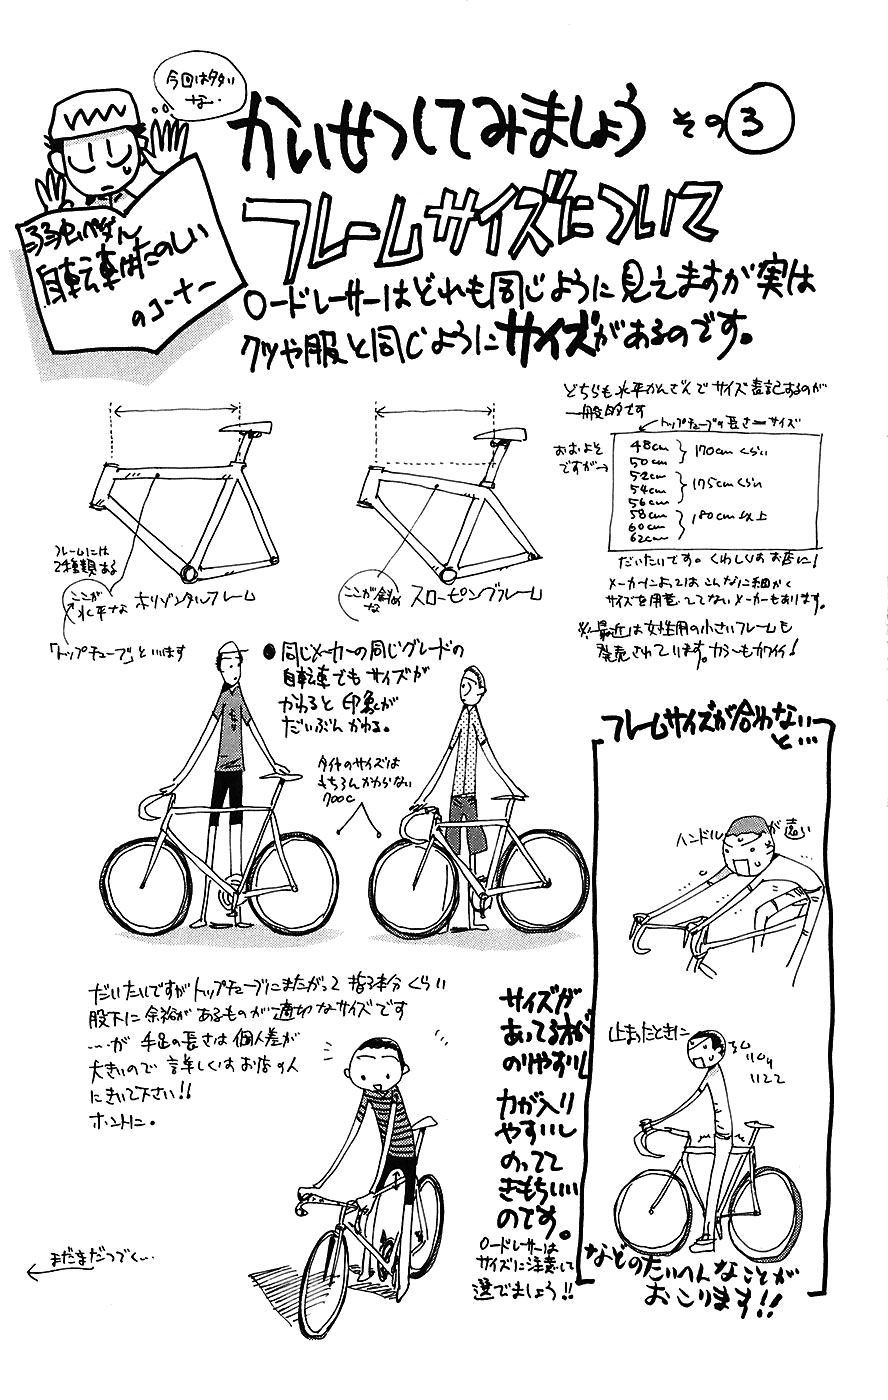 今回は多いな…
かいせつしてみましょう その③
フレームサイズについて
弱虫ペダル
自転車はたのしい
のコーナー
ロードレーサーはどれも同じように見えますが実は
クツや服と同じようにサイズがあるのです。
どちらも水平かんさんでサイズ表記するのが
一般的です
トップチューブの長さ=サイズ
おおよそ
ですが→
48cm
50cm
170cmくらい
52cm
54cm
56cm
175cmくらい
58cm
60cm
62cm
180cm以上
だいたいです。くわしくはお店に!
メーカーによってはこんなに細かく
サイズを用意してないメーカーもあります。
※最近は女性用の小さいフレームも
発売されています。カラーもカワイイ!
フレームには
2種類ある
ここが
水平な
ホリゾンタルフレーム
「トップチューブ」といいます
ここが斜め
な
スローピングフレーム
●同じメーカーの同じグレードの
自転車でもサイズが
かわると印象が
だいぶんかわる。
タイヤのサイズは
もちろんかわらない
700C
フレームサイズが合わない
と…
ハンドルが遠い
止まったときに
などのたいへんなことが
おこります!!
だいたいですがトップチューブにまたがって指3本分くらい
股下に余裕があるものが適切なサイズです
…が 手足の長さは個人差が
大きいので詳しくはお店の人
にきいて下さい!!
ホントに。
サイズが
あってる方が
のりやすいし
力が入り
やすいし
のってて
きもちいい
のです。
ロードレーサーは
サイズに注意して
選びましょう!!
まだまだつづく…